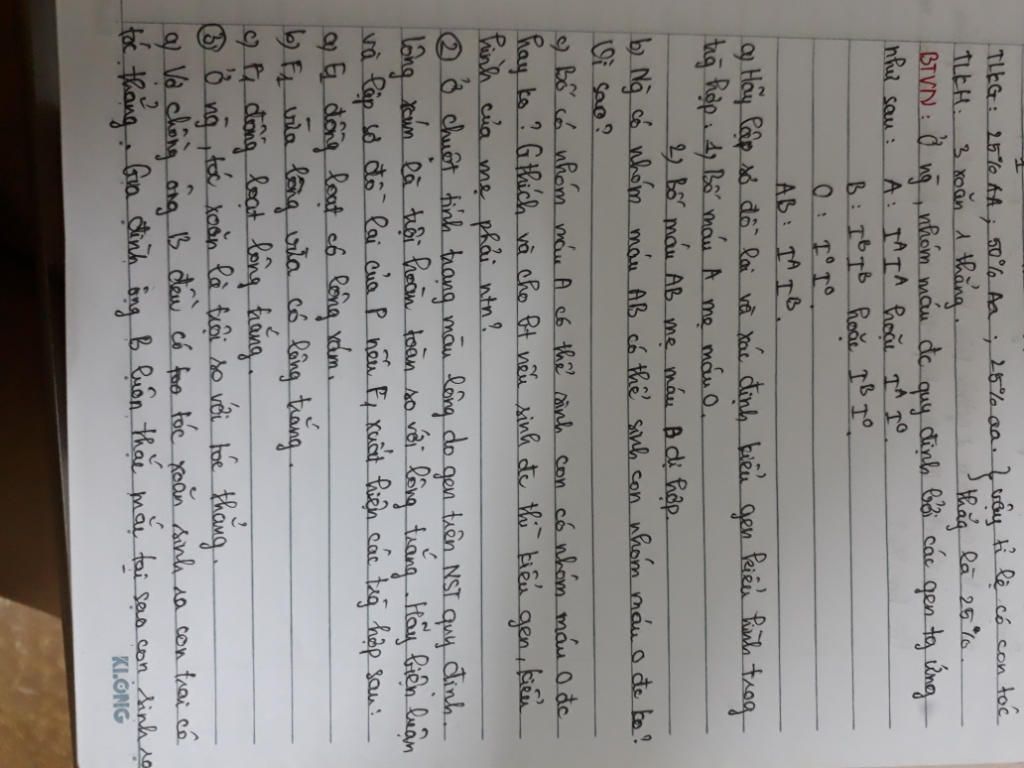 TLKG: 25% AA ; 50% Aa ; 25% aa. } vậy tỉ lệ có con tóc
TLKH: 3 xoăn 1 thẳng. } thẳng là 25%.
BTVN: Ở ng, nhóm máu đc quy định bởi các gen tg ứng
như sau: A: I^A I^A hoặc I^A I^O
B: I^B I^B hoặc I^B I^O
O: I^O I^O
AB: I^A I^B.
a) Hãy lập sơ đồ lai và xác định kiểu gen kiểu hình trog
trg hợp. 1) bố máu A mẹ máu O.
2) bố máu AB mẹ máu A dị hợp.
b) Ng có nhóm máu AB có thể sinh con nhóm máu O đc ko?
Vì sao?
c) Bố có nhóm máu A có thể sinh con có nhóm máu O đc
hay ko? Gthích và cho bt nếu sinh đc thì kiểu gen, kiểu
hình của mẹ phải ntn?
② Ở chuột tính trạng màu lông do gen trên NST quy định.
Lông xám là trội hoàn toàn so với lông trắng. Hãy biện luận
và lập sơ đồ lai của P nếu F1 xuất hiện các trg hợp sau:
a) F1 đồng loạt có lông xám.
b) F1 vừa lông vừa có lông trắng.
c) F1 đồng loạt lông trắng.
③ Ở ng, tóc xoăn là trội so với tóc thẳng.
a) Vợ chồng ông B đều có tóc xoăn sinh ra con trai có
tóc thẳng. Gia đình ông B luôn thắc mắc tại sao con sinh ra
KLONG